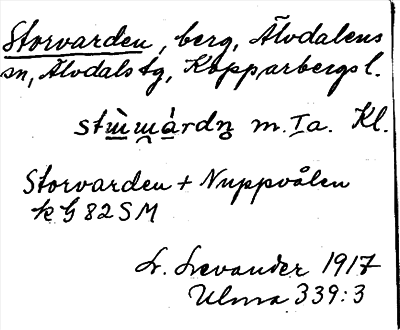 Storvarden, berg, Älvdalens
sn, Älvdals tg, Kopparbergs l.
m. Ia. Kl.
Storvarden + Nuppvålen
k G 82 SM
L. Levander 1917
Ulma 339:3